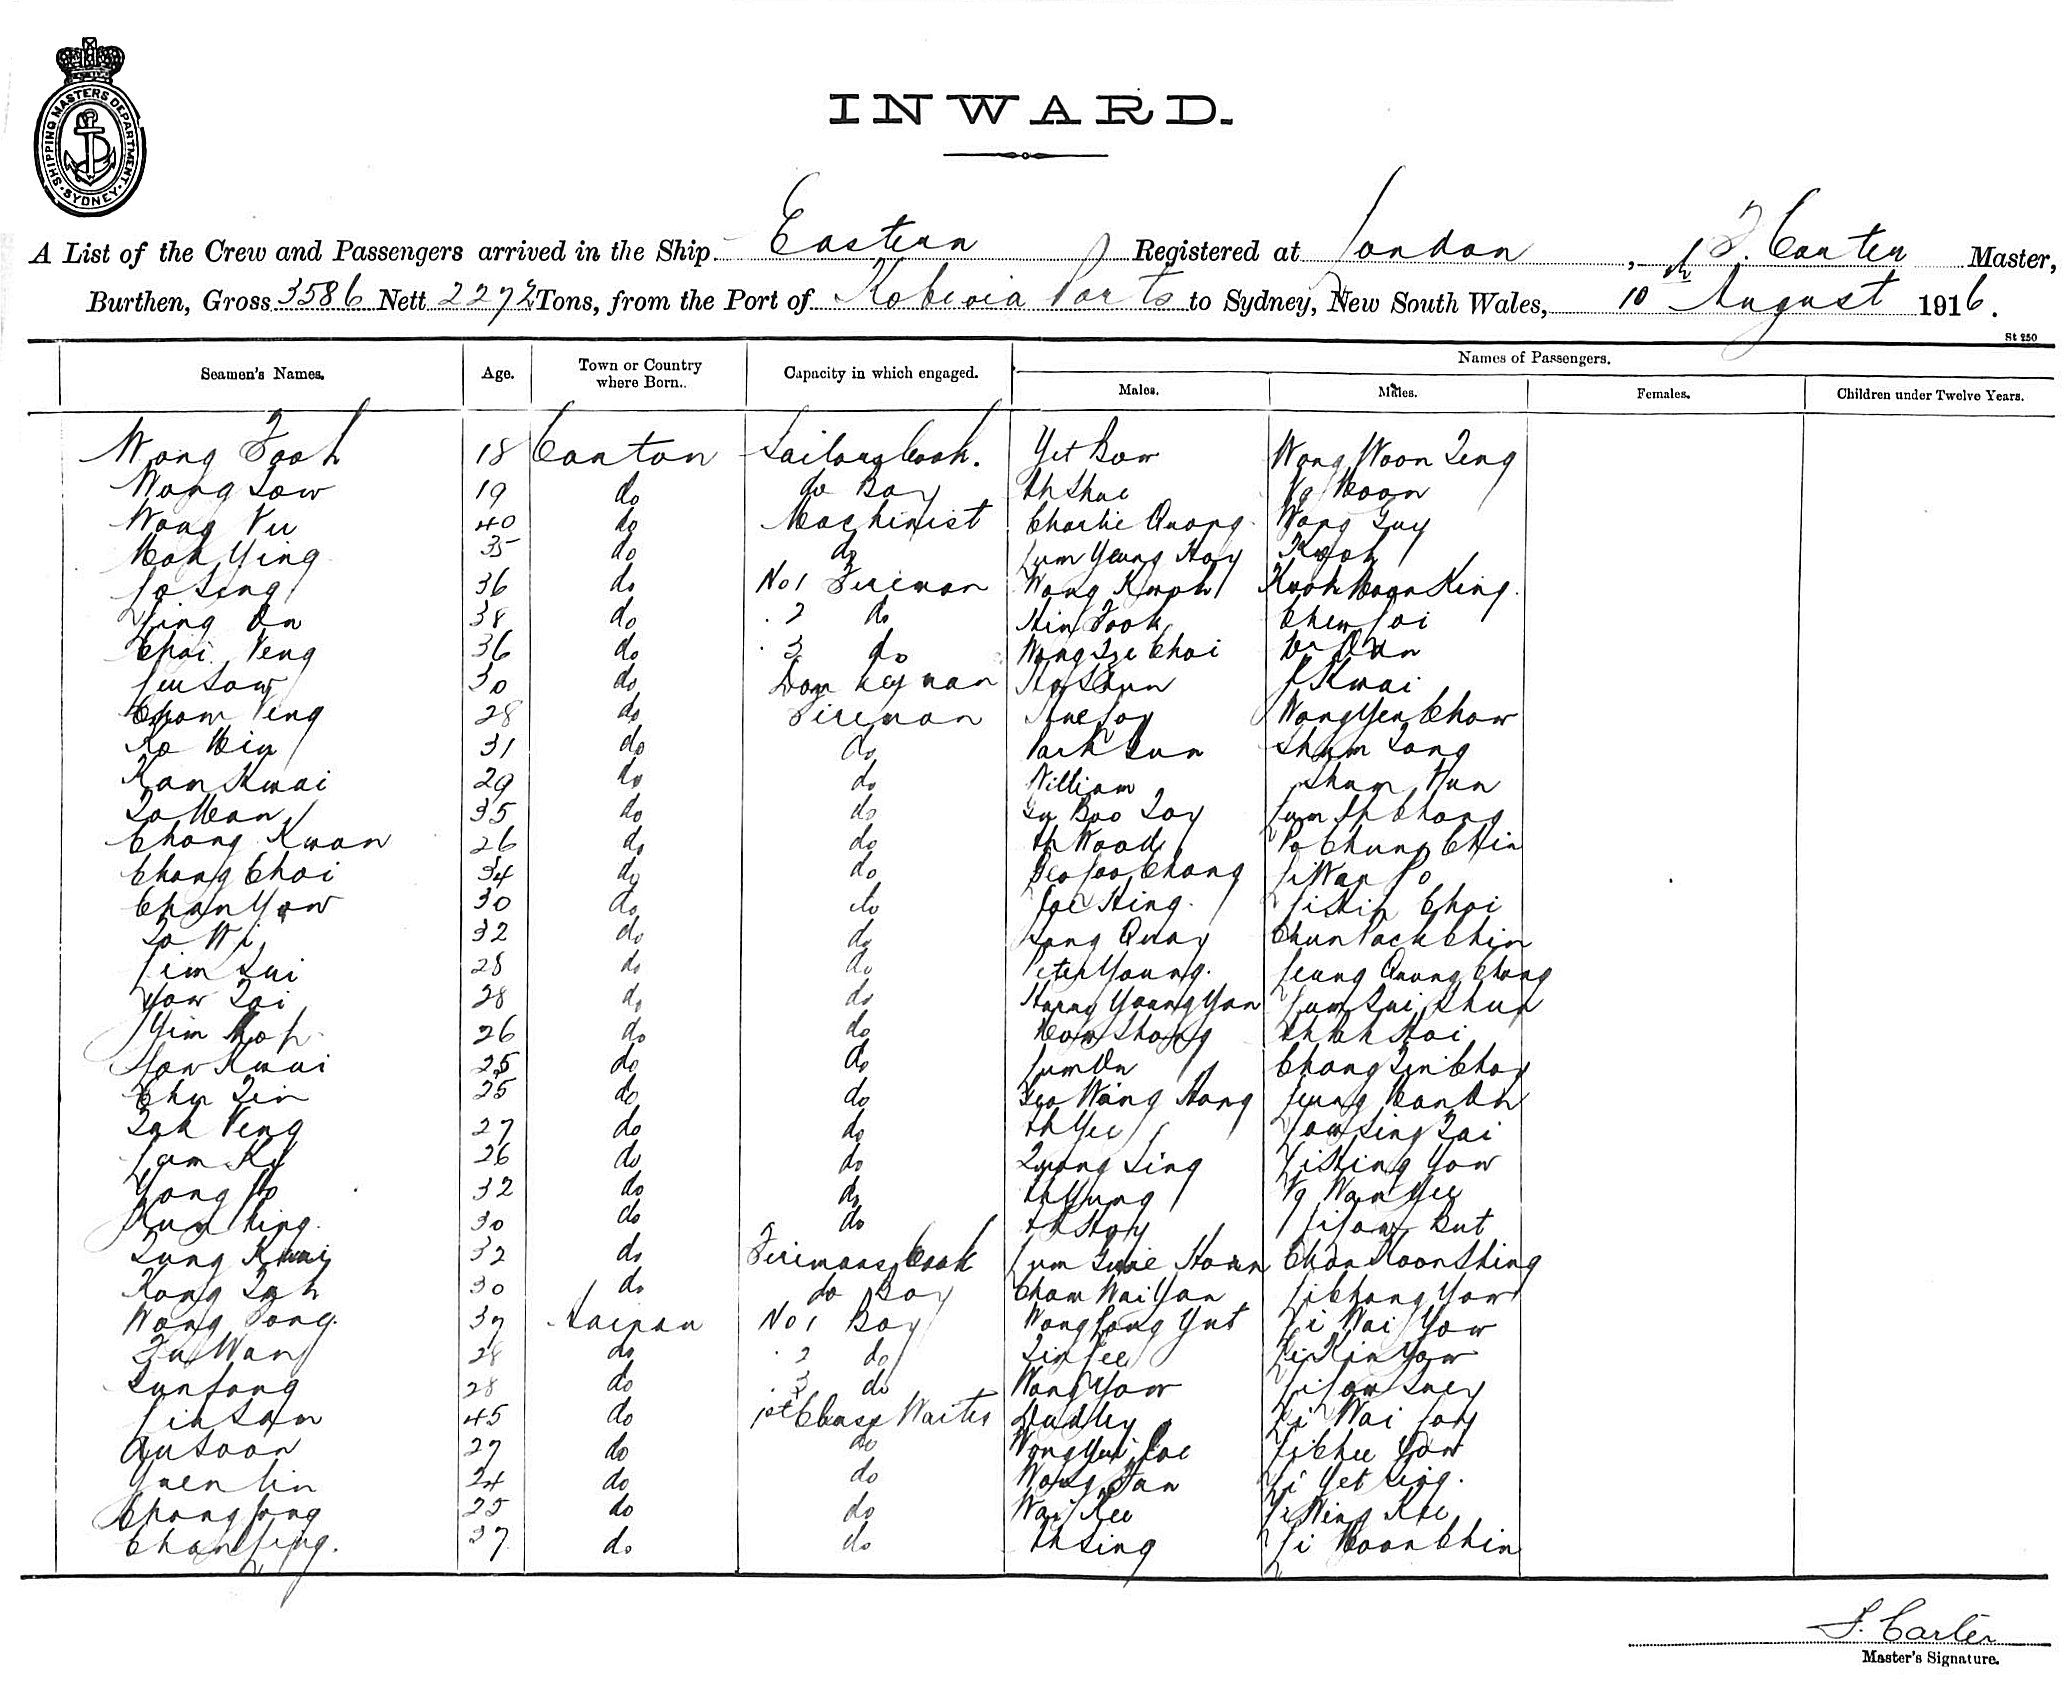 SHIPPING MASTERS DEPARTMENT · SYDNEY ·
INWARD.
A List of the Crew and Passengers arrived in the Ship Eastern Registered at London, F. Carter Master,
Burthen, Gross 3586 Nett 2272 Tons, from the Port of Kobe via Ports to Sydney, New South Wales, 10th August 1916.
St 250
Seamen's Names. Age. Town or Country where Born. Capacity in which engaged. Names of Passengers.
Males. Males. Females. Children under Twelve Years.
Wong Fook 18 Canton Sailors Cook. Yet Bow Wong Woon Ting
Wong Sow 19 do do Boy Ah Shue Ng Moon
Wong Yu 40 do Machinist Charlie Quong Wong Guy
Mok Ying 35 do do Lum Yeung Hoy Kwok
Lo Sing 36 do No 1 Fireman Wong Kwok Kwok Moon King.
Ling On 38 do 2 do Hin Fook Chew Loi
Choi Yeng 36 do 3 do Wong Sze Choi
Lu Sow 30 do Donkeyman Ho Shun J Kwai
Chow Yeng 28 do Fireman Hue Loy Wong Yen Chow
Ko Min 31 do do Pack Sun Shum Song
Kan Kwai 29 do do William Shum Hun
So Man 35 do do Su Boo Soy Lum Ah Chong
Chong Kwan 26 do do Ah Wood Po Chung Chin
Chong Choi 34 do do Geo Loo Chong Li Wan Po
Chan Yow 30 do do Joe Hing. Li Hip Choi
So Wi 32 do do Song Quay Chun Pack Chin
Lim Sui 28 do do Peter Young. Leung Quong Chong
Yow Soi 28 do do Harry Young Yan Lum Sui Shun
Yim Hop 26 do do Mow Shong Ah Hoi
Yow Kwai 25 do do Lum On Chong Tin Choy
Chu Tin 25 do do Geo Wing Hong Leung Man On
Sak Yeng 27 do do Ah Yee Low Sing Tai
Lam Ki 26 do do Quong Sing Li Hing Yow
Yong Ho 32 do do Ah Yung Ng Wan Yee
Kum Hing. 30 do do Ah Hoy Li Low But
Sung Kwai 32 do Firemans Cook Lum Hoan Chan Koon Shing
Kong Sak 30 do do Boy Cham Wai Yan Li Chong Yow
Wong Song. 37 No 1 Boy Wong Long Yut Li Wai Yow
Fu Wan 28 do 2 do Tin Lee Li Kin Yow
Sun Fong 28 do 3 do Wong Yow Li Low Suey
Lin Sam 45 do 1st Class Waiter Dudley Li Wai Long
Au Soon 27 do do Wong Yui Poe Li Chee Yow
Yuen Lin 24 do do Wong Fan Li Yet Sing.
Chong Song 25 do do Wai Kee Li Wing Kee
Chan Sing. 37 do do Ah Sing Li Moon Chin
F. Carter
Master's Signature.